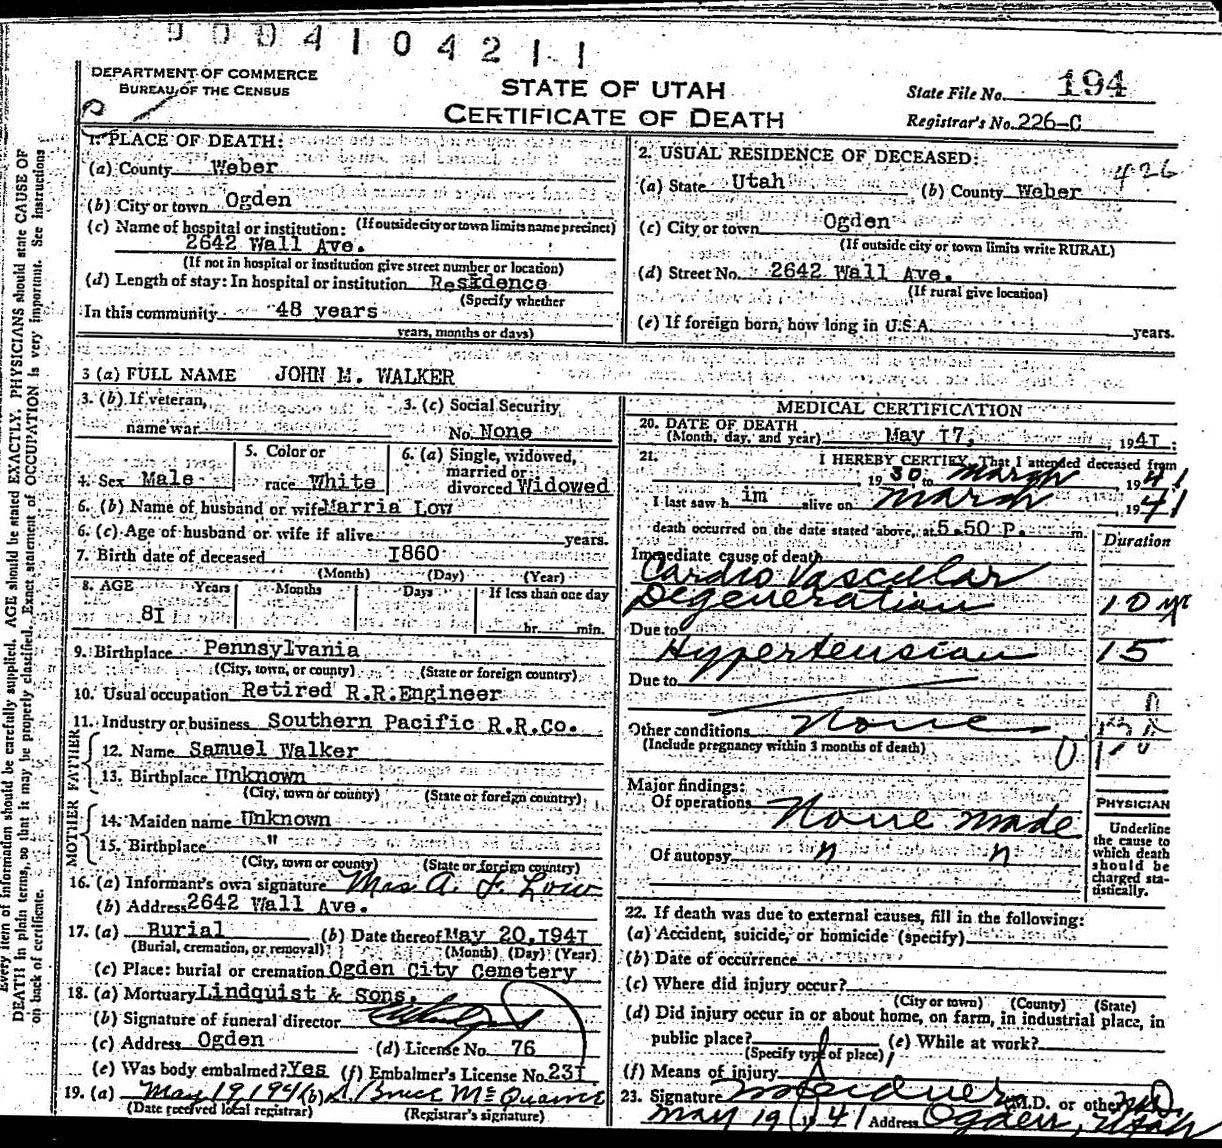 0004104211
DEPARTMENT OF COMMERCE
BUREAU OF THE CENSUS
STATE OF UTAH
CERTIFICATE OF DEATH
State File No. 194
Registrar's No. 226-C
1. PLACE OF DEATH:
(a) County Weber
(b) City or town Ogden
(If outside city or town limits name precinct)
(c) Name of hospital or institution:
2642 Wall Ave.
(If not in hospital or institution give street number or location)
(d) Length of stay: In hospital or institution Residence
(Specify whether
In this community 48 years
years, months or days)
2. USUAL RESIDENCE OF DECEASED: 426
(a) State Utah (b) County Weber
(c) City or town Ogden
(If outside city or town limits write RURAL)
(d) Street No. 2642 Wall Ave.
(If rural give location)
(e) If foreign born, how long in U.S.A. years.
3 (a) FULL NAME JOHN M. WALKER
3. (b) If veteran,
name war
3. (c) Social Security
No. None
4. Sex Male
5. Color or
race White
6. (a) Single, widowed,
married or
divorced Widowed
6. (b) Name of husband or wife Marria Low
6. (c) Age of husband or wife if alive years.
7. Birth date of deceased 1860
(Month) (Day) (Year)
8. AGE Years Months Days If less than one day
81 hr. min.
9. Birthplace Pennsylvania
(City, town, or county) (State or foreign country)
10. Usual occupation Retired R.R.Engineer
11. Industry or business Southern Pacific R.R.Co.
FATHER
12. Name Samuel Walker
13. Birthplace Unknown
(City, town or county) (State or foreign country)
MOTHER
14. Maiden name Unknown
15. Birthplace "
(City, town or county) (State or foreign country)
16. (a) Informant's own signature Mrs A. F. Low
(b) Address 2642 Wall Ave.
17. (a) Burial (b) Date thereof May 20, 1941
(Burial, cremation, or removal) (Month) (Day) (Year)
(c) Place: burial or cremation Ogden City Cemetery
18. (a) Mortuary Lindquist & Sons.
(b) Signature of funeral director
(c) Address Ogden (d) License No. 76
(e) Was body embalmed? Yes (f) Embalmer's License No. 231
19. (a) May 19 1941 (b) S. Bruce McQuarrie
(Date received local registrar) (Registrar's signature)
MEDICAL CERTIFICATION
20. DATE OF DEATH
(Month, day, and year) May 17, 1941
21. I HEREBY CERTIFY, That I attended deceased from
1930 to March 1941
I last saw him alive on March, 1941
death occurred on the date stated above, at 5.50 P. m.
Duration
Immediate cause of death
Cardio Vascular
Degeneration 10 yr
Due to
Hypertension 15
Due to
Other conditions None
(Include pregnancy within 3 months of death)
Major findings:
Of operations None made
Of autopsy " "
PHYSICIAN
Underline
the cause to
which death
should be
charged sta-
tistically.
22. If death was due to external causes, fill in the following:
(a) Accident, suicide, or homicide (specify)
(b) Date of occurrence
(c) Where did injury occur?
(City or town) (County) (State)
(d) Did injury occur in or about home, on farm, in industrial place, in
public place? (e) While at work?
(Specify type of place)
(f) Means of injury
23. Signature (M.D. or other) M.D.
May 19 41 Address Ogden, Utah
Every item of information should be carefully supplied. AGE should be stated EXACTLY. PHYSICIANS should state CAUSE OF
DEATH in plain terms, so that it may be properly classified. Exact statement of OCCUPATION is very important. See instructions
on back of certificate.